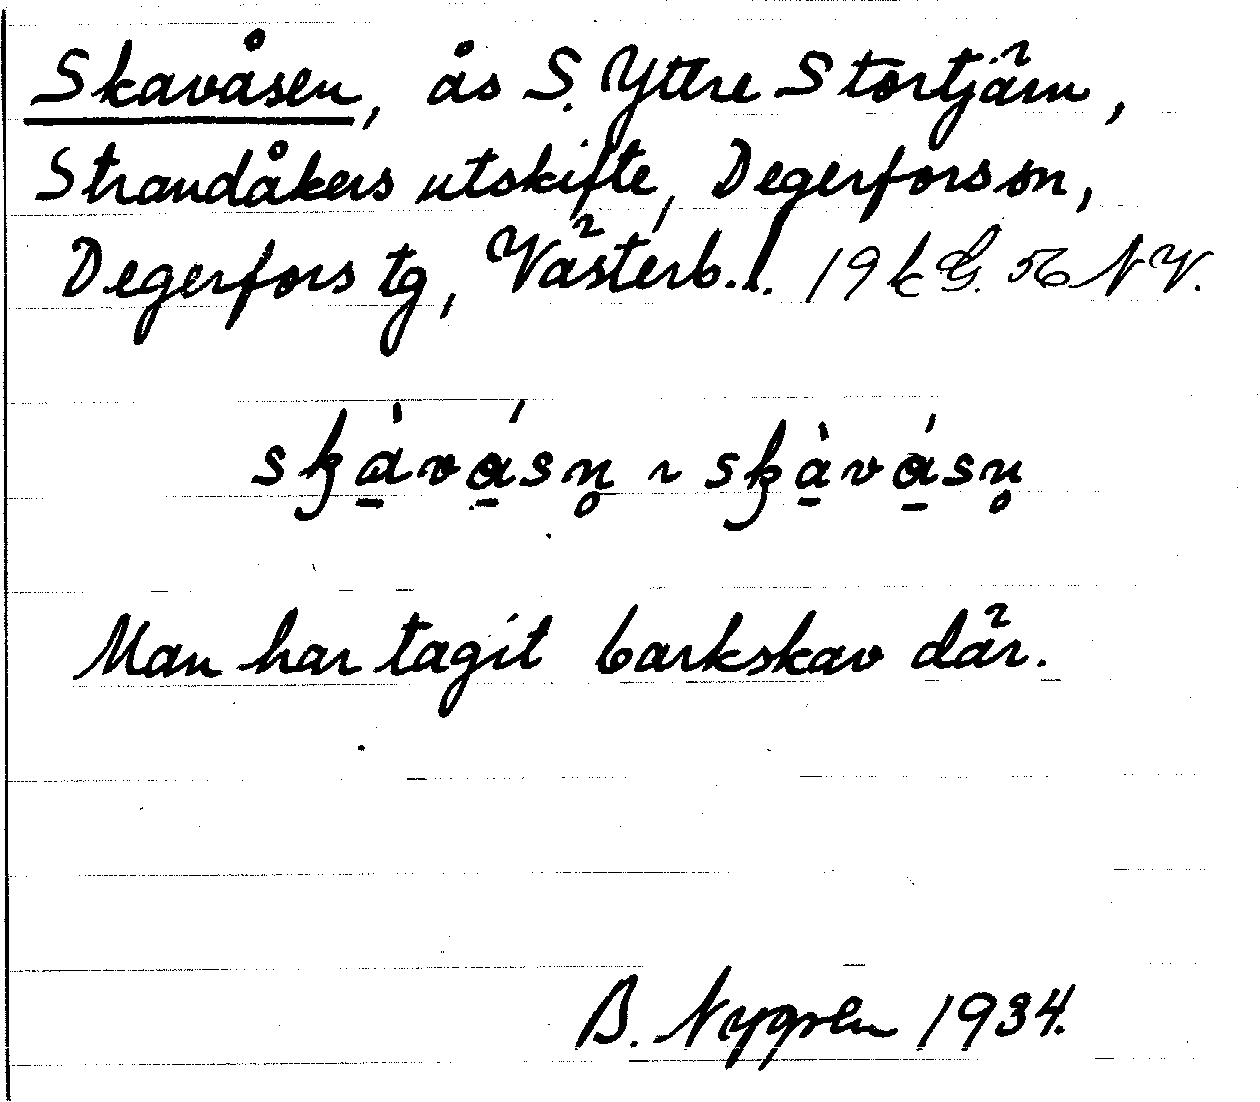 Skavåsen, ås S. Yttre Stortjärn,
Strandåkers utskifte, Degerfors sn,
Degerfors tg, Västerb. l. 19 k G. 56 NV.
skàvásn̥ ~ skàvásn̥
Man har tagit barkskav där.
B. Nygren 1934.